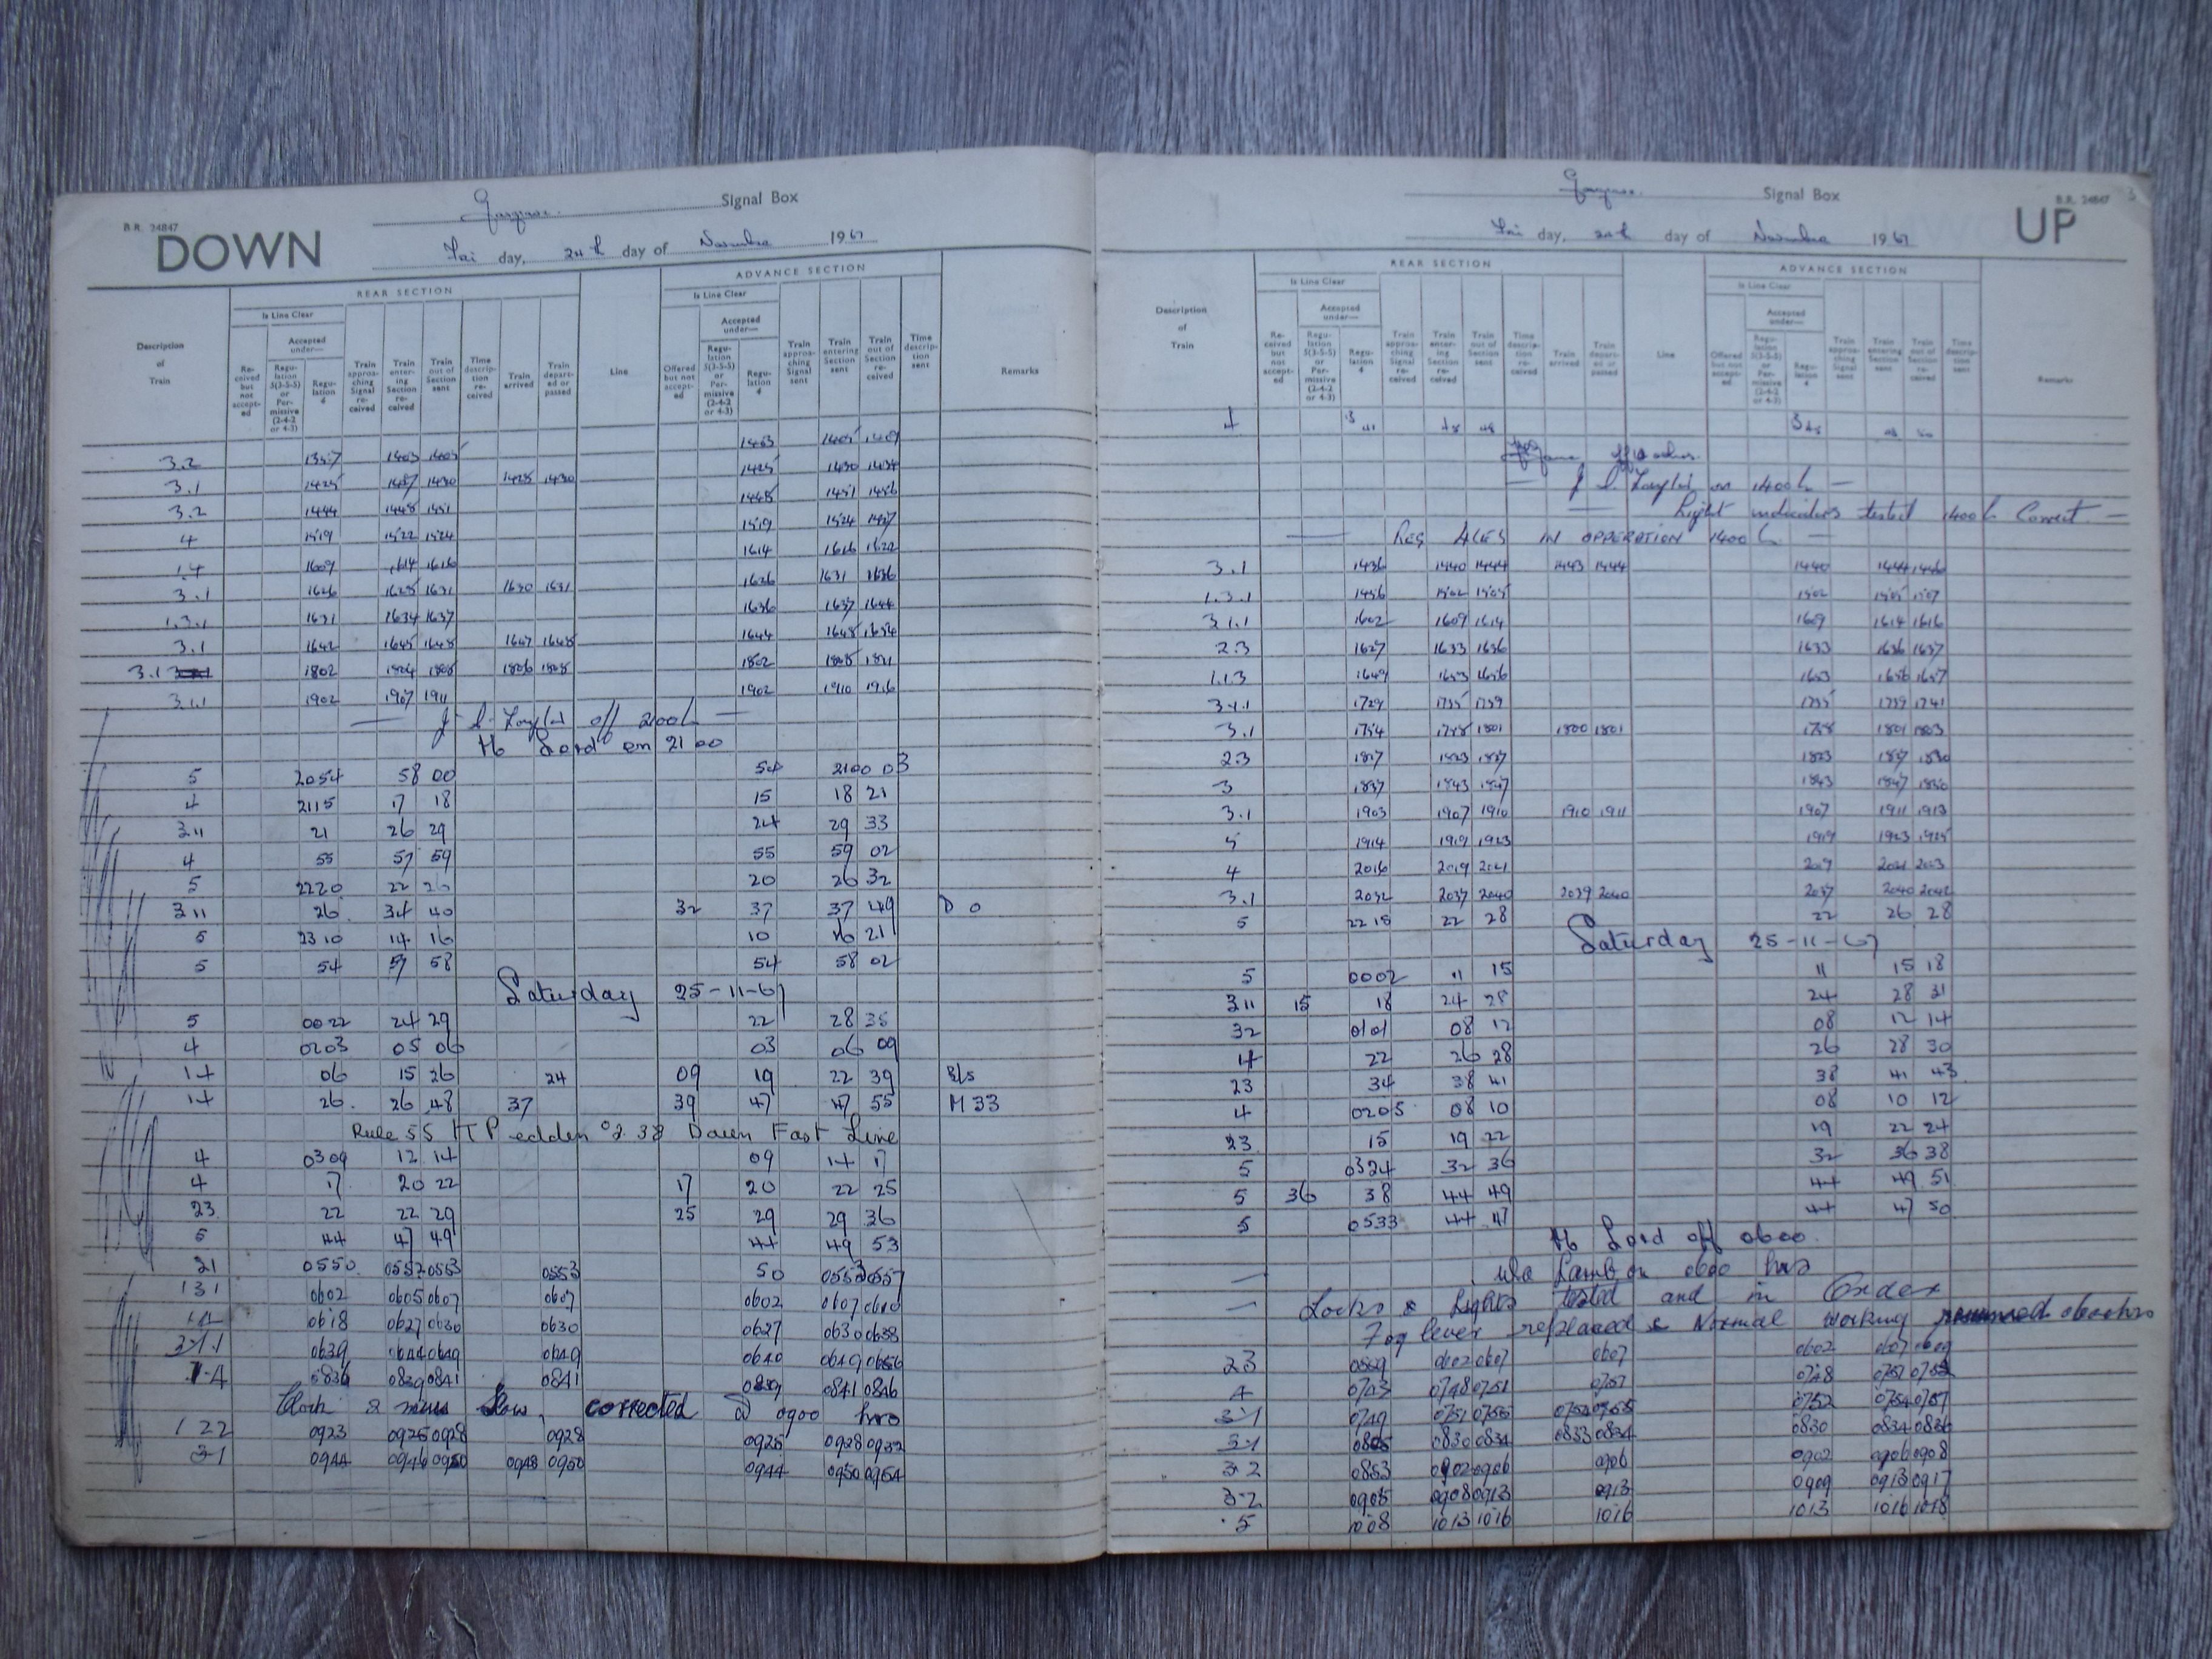 B.R. 24847
DOWN
Signal Box
Fri day, 24th day of November 1967
REAR SECTION
ADVANCE SECTION
Is Line Clear
Is Line Clear
Accepted under—
Accepted under—
Description of Train
Received but not accepted
Regulation 5(3-5-5) or Permissive (2-4-2 or 4-3)
Regulation 4
Train approaching Signal received
Train entering Section received
Train out of Section sent
Time description received
Train arrived
Train departed or passed
Line
Offered but not accepted
Regulation 5(3-5-5) or Permissive (2-4-2 or 4-3)
Regulation 4
Train approaching Signal sent
Train entering Section sent
Train out of Section received
Time description sent
Remarks
3.2 1357 1403 1405 1403 1405 1409
3.1 1425 1427 1430 1428 1430 1425 1430 1434
3.2 1444 1448 1451 1448 1451 1456
4 1519 1522 1524 1519 1524 1527
1.4 1609 1614 1616 1614 1616 1622
3.1 1626 1628 1631 1630 1631 1626 1631 1636
1.3.1 1631 1634 1637 1636 1637 1644
3.1 1642 1645 1648 1647 1648 1644 1648 1654
3.1 1802 1804 1808 1806 1808 1802 1808 1811
3.1.1 1902 1907 1911 1902 1910 1916
off 2100h
H Lord on 2100
5 2054 58 00 54 2100 03
4 2115 17 18 15 18 21
311 21 26 29 24 29 33
4 55 57 59 55 59 02
5 2220 22 26 20 26 32
311 26 34 40 32 37 37 49 D O
5 2310 14 16 10 16 21
5 54 57 58 54 58 02
Saturday 25-11-67
5 0022 24 29 22 28 35
4 0203 05 06 03 06 09
14 06 15 26 24 09 19 22 39 B/S
14 26 26 48 37 39 47 47 55 M 33
Rule 55 HT Pedden 02.38 Down Fast Line
4 0309 12 14 09 14 17
4 17 20 22 17 20 22 25
23 22 22 29 25 29 29 36
5 44 47 49 44 49 53
21 0550 0552 0553 0553 50 0553 0557
131 0602 0605 0607 0607 0602 0607 0610
14 0618 0627 0630 0630 0627 0630 0638
3.1.1 0639 0644 0649 0649 0640 0649 0656
1.4 0836 0839 0841 0841 0839 0841 0846
Clock 2 mins slow, corrected @ 0900 hrs
122 0923 0925 0928 0928 0925 0928 0932
3-1 0944 0946 0950 0948 0950 0944 0950 0954
Signal Box
B.R. 24847 3
UP
Fri day, 24th day of November 1967
REAR SECTION
ADVANCE SECTION
Is Line Clear
Is Line Clear
Accepted under—
Accepted under—
Description of Train
Received but not accepted
Regulation 5(3-5-5) or Permissive (2-4-2 or 4-3)
Regulation 4
Train approaching Signal received
Train entering Section received
Train out of Section sent
Time description received
Train arrived
Train departed or passed
Line
Offered but not accepted
Regulation 5(3-5-5) or Permissive (2-4-2 or 4-3)
Regulation 4
Train approaching Signal sent
Train entering Section sent
Train out of Section received
Time description sent
Remarks
4
on 1400h
Light indicators tested 1400h Correct
REG IN OPPERATION 1400h
3.1 1436 1440 1444 1443 1444 1440 1444 1446
1.3.1 1456 1502 1505 1502 1505 1507
3.1.1 1602 1609 1614 1609 1614 1616
2.3 1627 1633 1636 1633 1636 1637
1.1.3 1649 1653 1656 1653 1656 1657
3.1.1 1729 1735 1739 1735 1739 1741
3.1 1754 1758 1801 1800 1801 1758 1801 1803
2.3 1817 1823 1827 1823 1827 1830
3 1837 1843 1847 1843 1847 1850
3.1 1903 1907 1910 1910 1911 1907 1911 1913
5 1914 1919 1923 1919 1923 1925
4 2016 2019 2021 2019 2021 2023
3.1 2032 2037 2040 2039 2040 2037 2040 2042
5 2218 22 28 22 26 28
Saturday 25-11-67
5 0002 11 15 11 15 18
311 15 18 24 28 24 28 31
32 0101 08 12 08 12 14
4 22 26 28 26 28 30
23 34 38 41 38 41 43
4 0205 08 10 08 10 12
23 15 19 22 19 22 24
5 0324 32 36 32 36 38
5 36 38 44 49 44 49 51
5 0533 44 47 44 47 50
H Lord off 0600.
Lamb on 0600 hrs
Locks & Lights tested and in Order
Fog lever replaced & Normal working resumed
2.3 0559 0602 0607 0607 0602 0607 0609
4 0743 0748 0751 0751 0748 0751 0752
3-1 0749 0751 0755 0752 0754 0757
3-1 0825 0830 0834 0833 0834 0830 0834 0836
3-2 0853 0902 0906 0906 0902 0906 0908
3-2 0905 0908 0913 0913 0909 0913 0917
5 1008 1013 1016 1016 1013 1016 1018